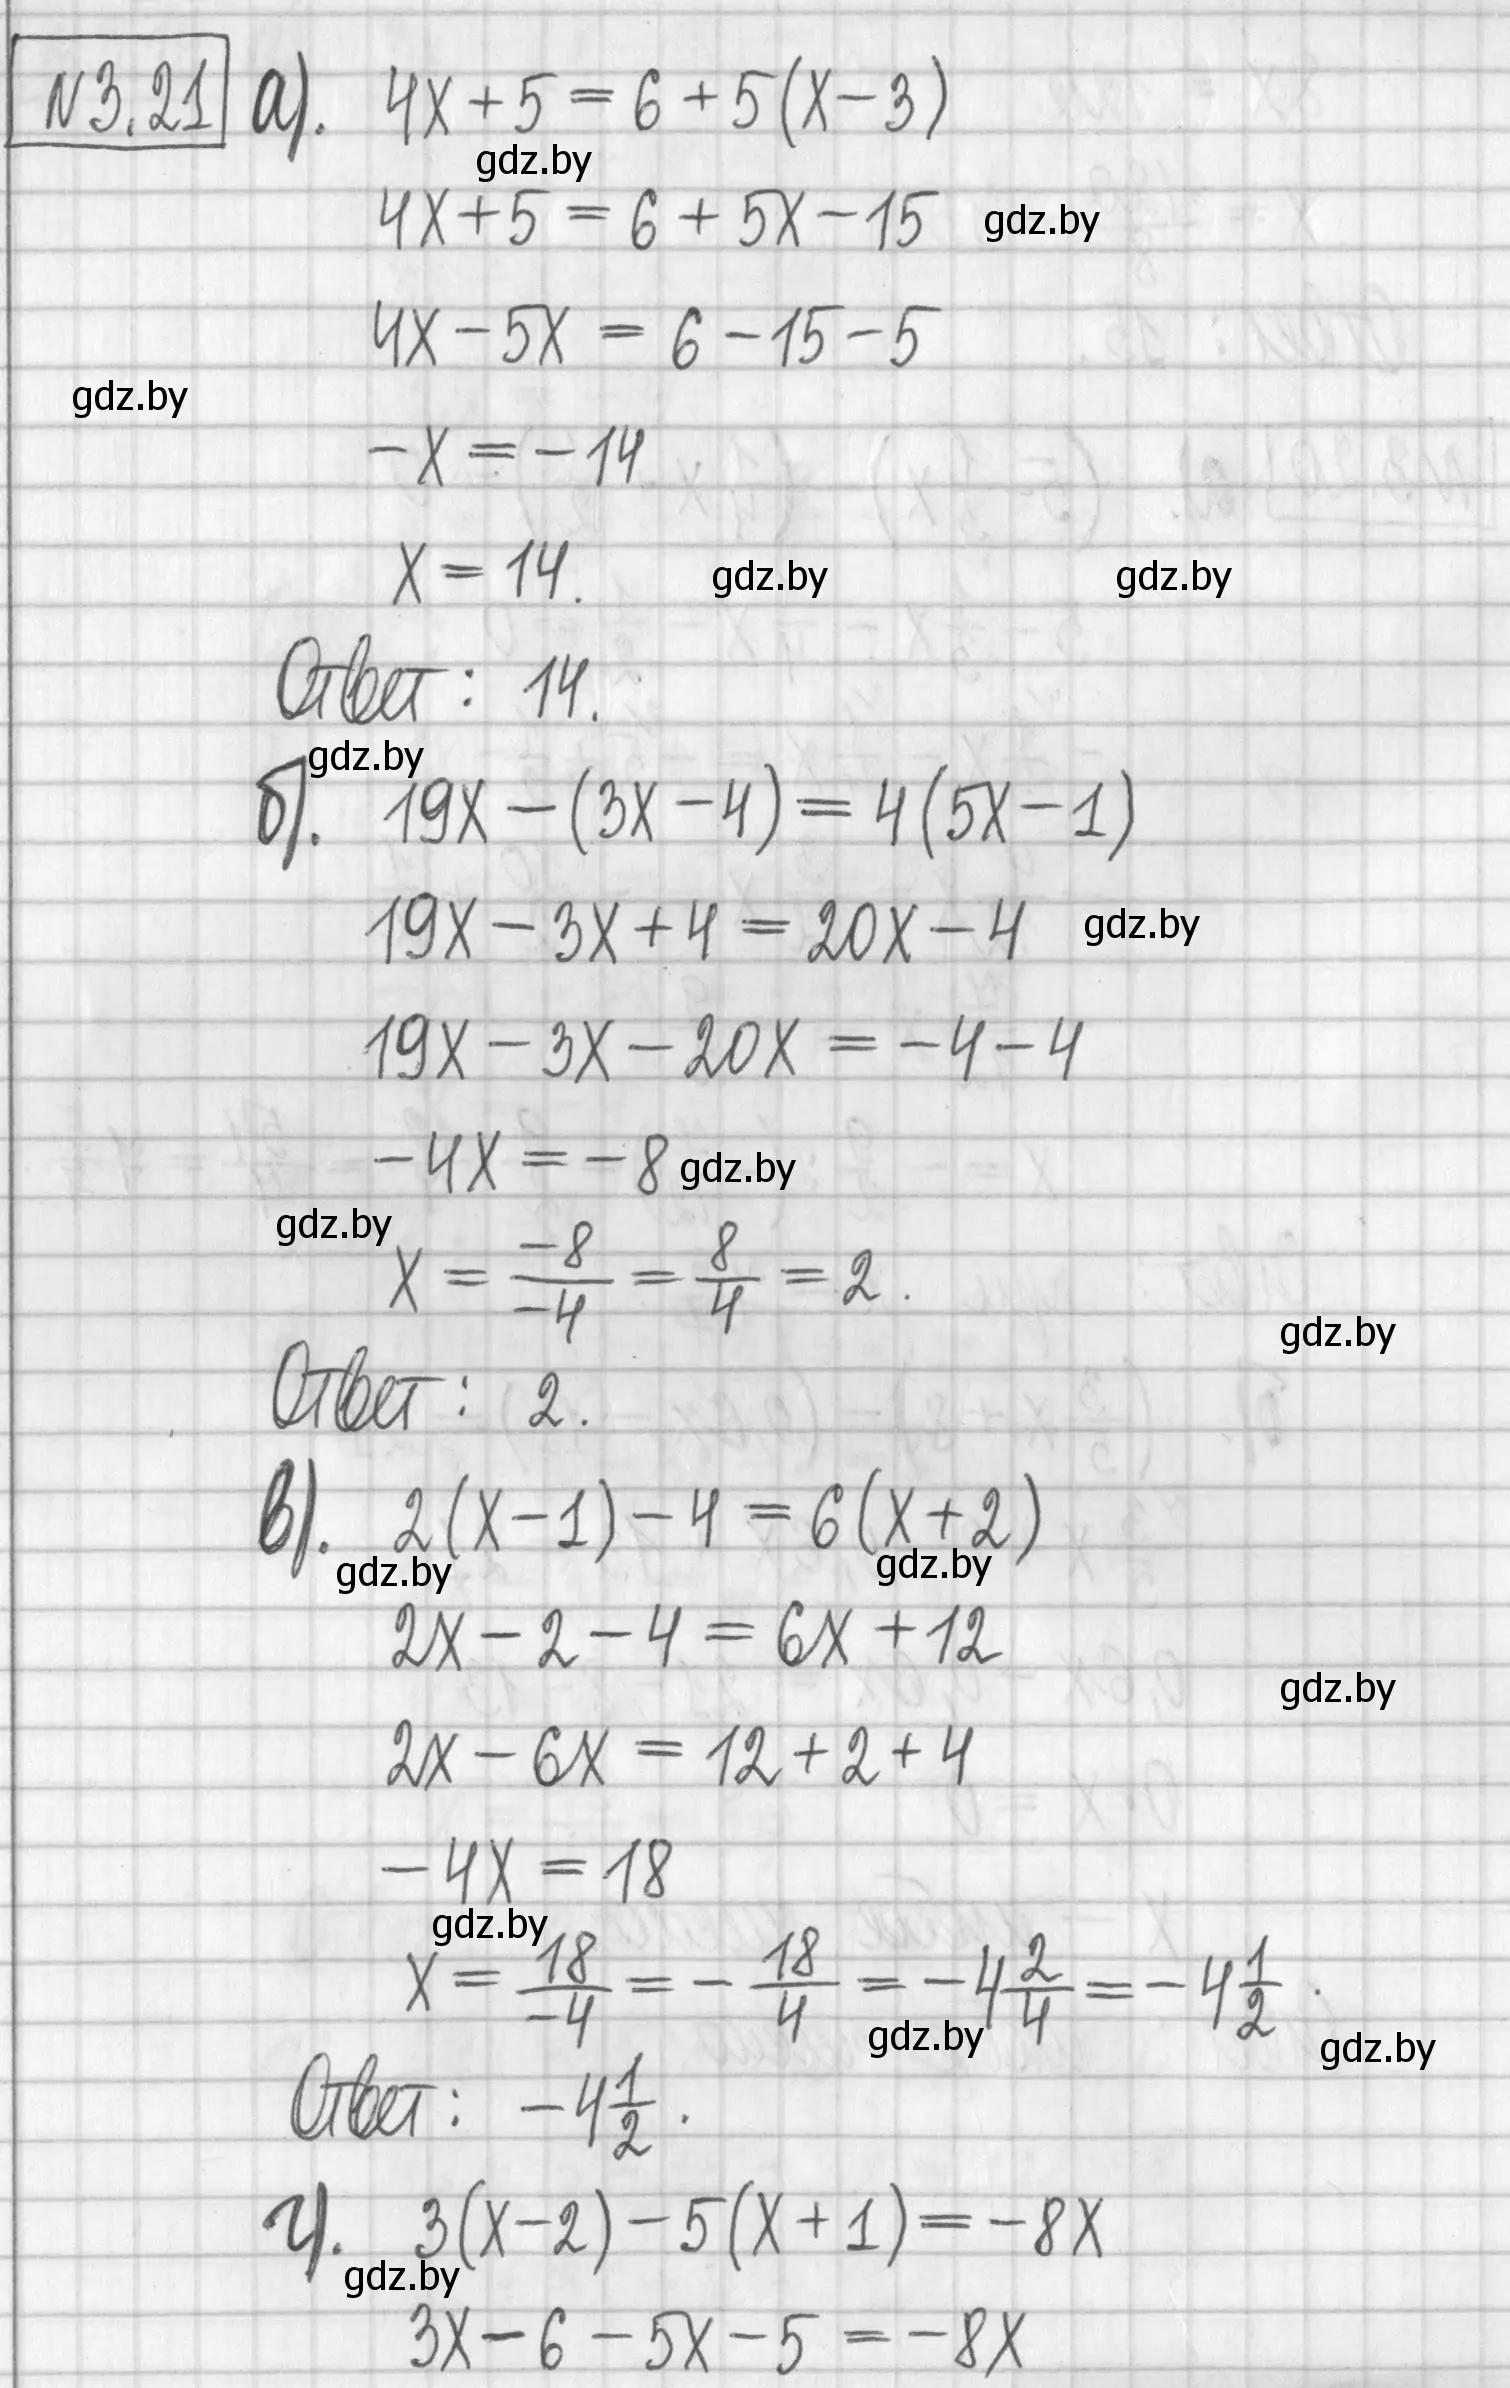 N3.21 а). 4x + 5 = 6 + 5(x − 3)
gdz.by
4x + 5 = 6 + 5x − 15 gdz.by
4x − 5x = 6 − 15 − 5
gdz.by
−x = −14
x = 14. gdz.by gdz.by
Ответ: 14.
gdz.by
б). 19x − (3x − 4) = 4(5x − 1)
19x − 3x + 4 = 20x − 4 gdz.by
19x − 3x − 20x = −4 − 4
−4x = −8 gdz.by
gdz.by
x = −8/−4 = 8/4 = 2.
gdz.by
Ответ: 2.
в). 2(x − 1) − 4 = 6(x + 2)
gdz.by gdz.by
2x − 2 − 4 = 6x + 12
gdz.by
2x − 6x = 12 + 2 + 4
−4x = 18
gdz.by
x = 18/−4 = −18/4 = −4 2/4 = −4 1/2.
gdz.by gdz.by
Ответ: −4 1/2.
г). 3(x − 2) − 5(x + 1) = −8x
gdz.by
3x − 6 − 5x − 5 = −8x